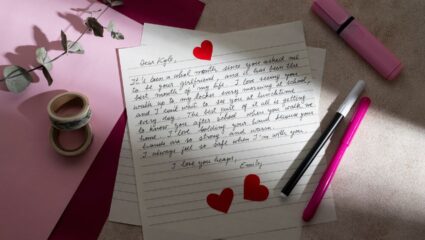 Dear Kyle,
It's been a whole month since you asked me
to be your girlfriend, and it has been the
best month of my life. I love seeing you
walk up to my locker every morning at school,
and I can't wait to see you at lunchtime
every day. The best part of it all is getting
to know you after school when you walk me
home. I love holding your hand because your
hands are so strong and warm.
I always feel so safe when I'm with you.
I love you heaps,
Emily